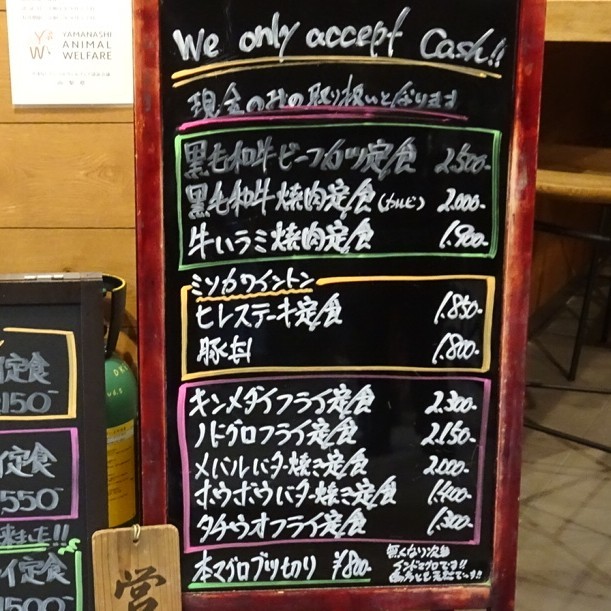 YAMANASHI
ANIMAL
WELFARE
We only accept Cash!!
現金のみの取り扱いとなります
黒毛和牛ビーフカツ定食 2,500-
黒毛和牛焼肉定食(カルビ) 2,000-
牛ハラミ焼肉定食 1,900-
ミソカワイントン
ヒレステーキ定食 1,850-
豚丼 1,800-
キンメダイフライ定食 2,300-
ノドグロフライ定食 2,150-
メバルバター焼き定食 2,000-
ホウボウバター焼き定食 1,400-
タチウオフライ定食 1,300-
本マグロブツ切り ¥800-
無くなり次第
インドマグロです!!
定食
150-
定食
,550-
来ました!!
イ定食
500-
営